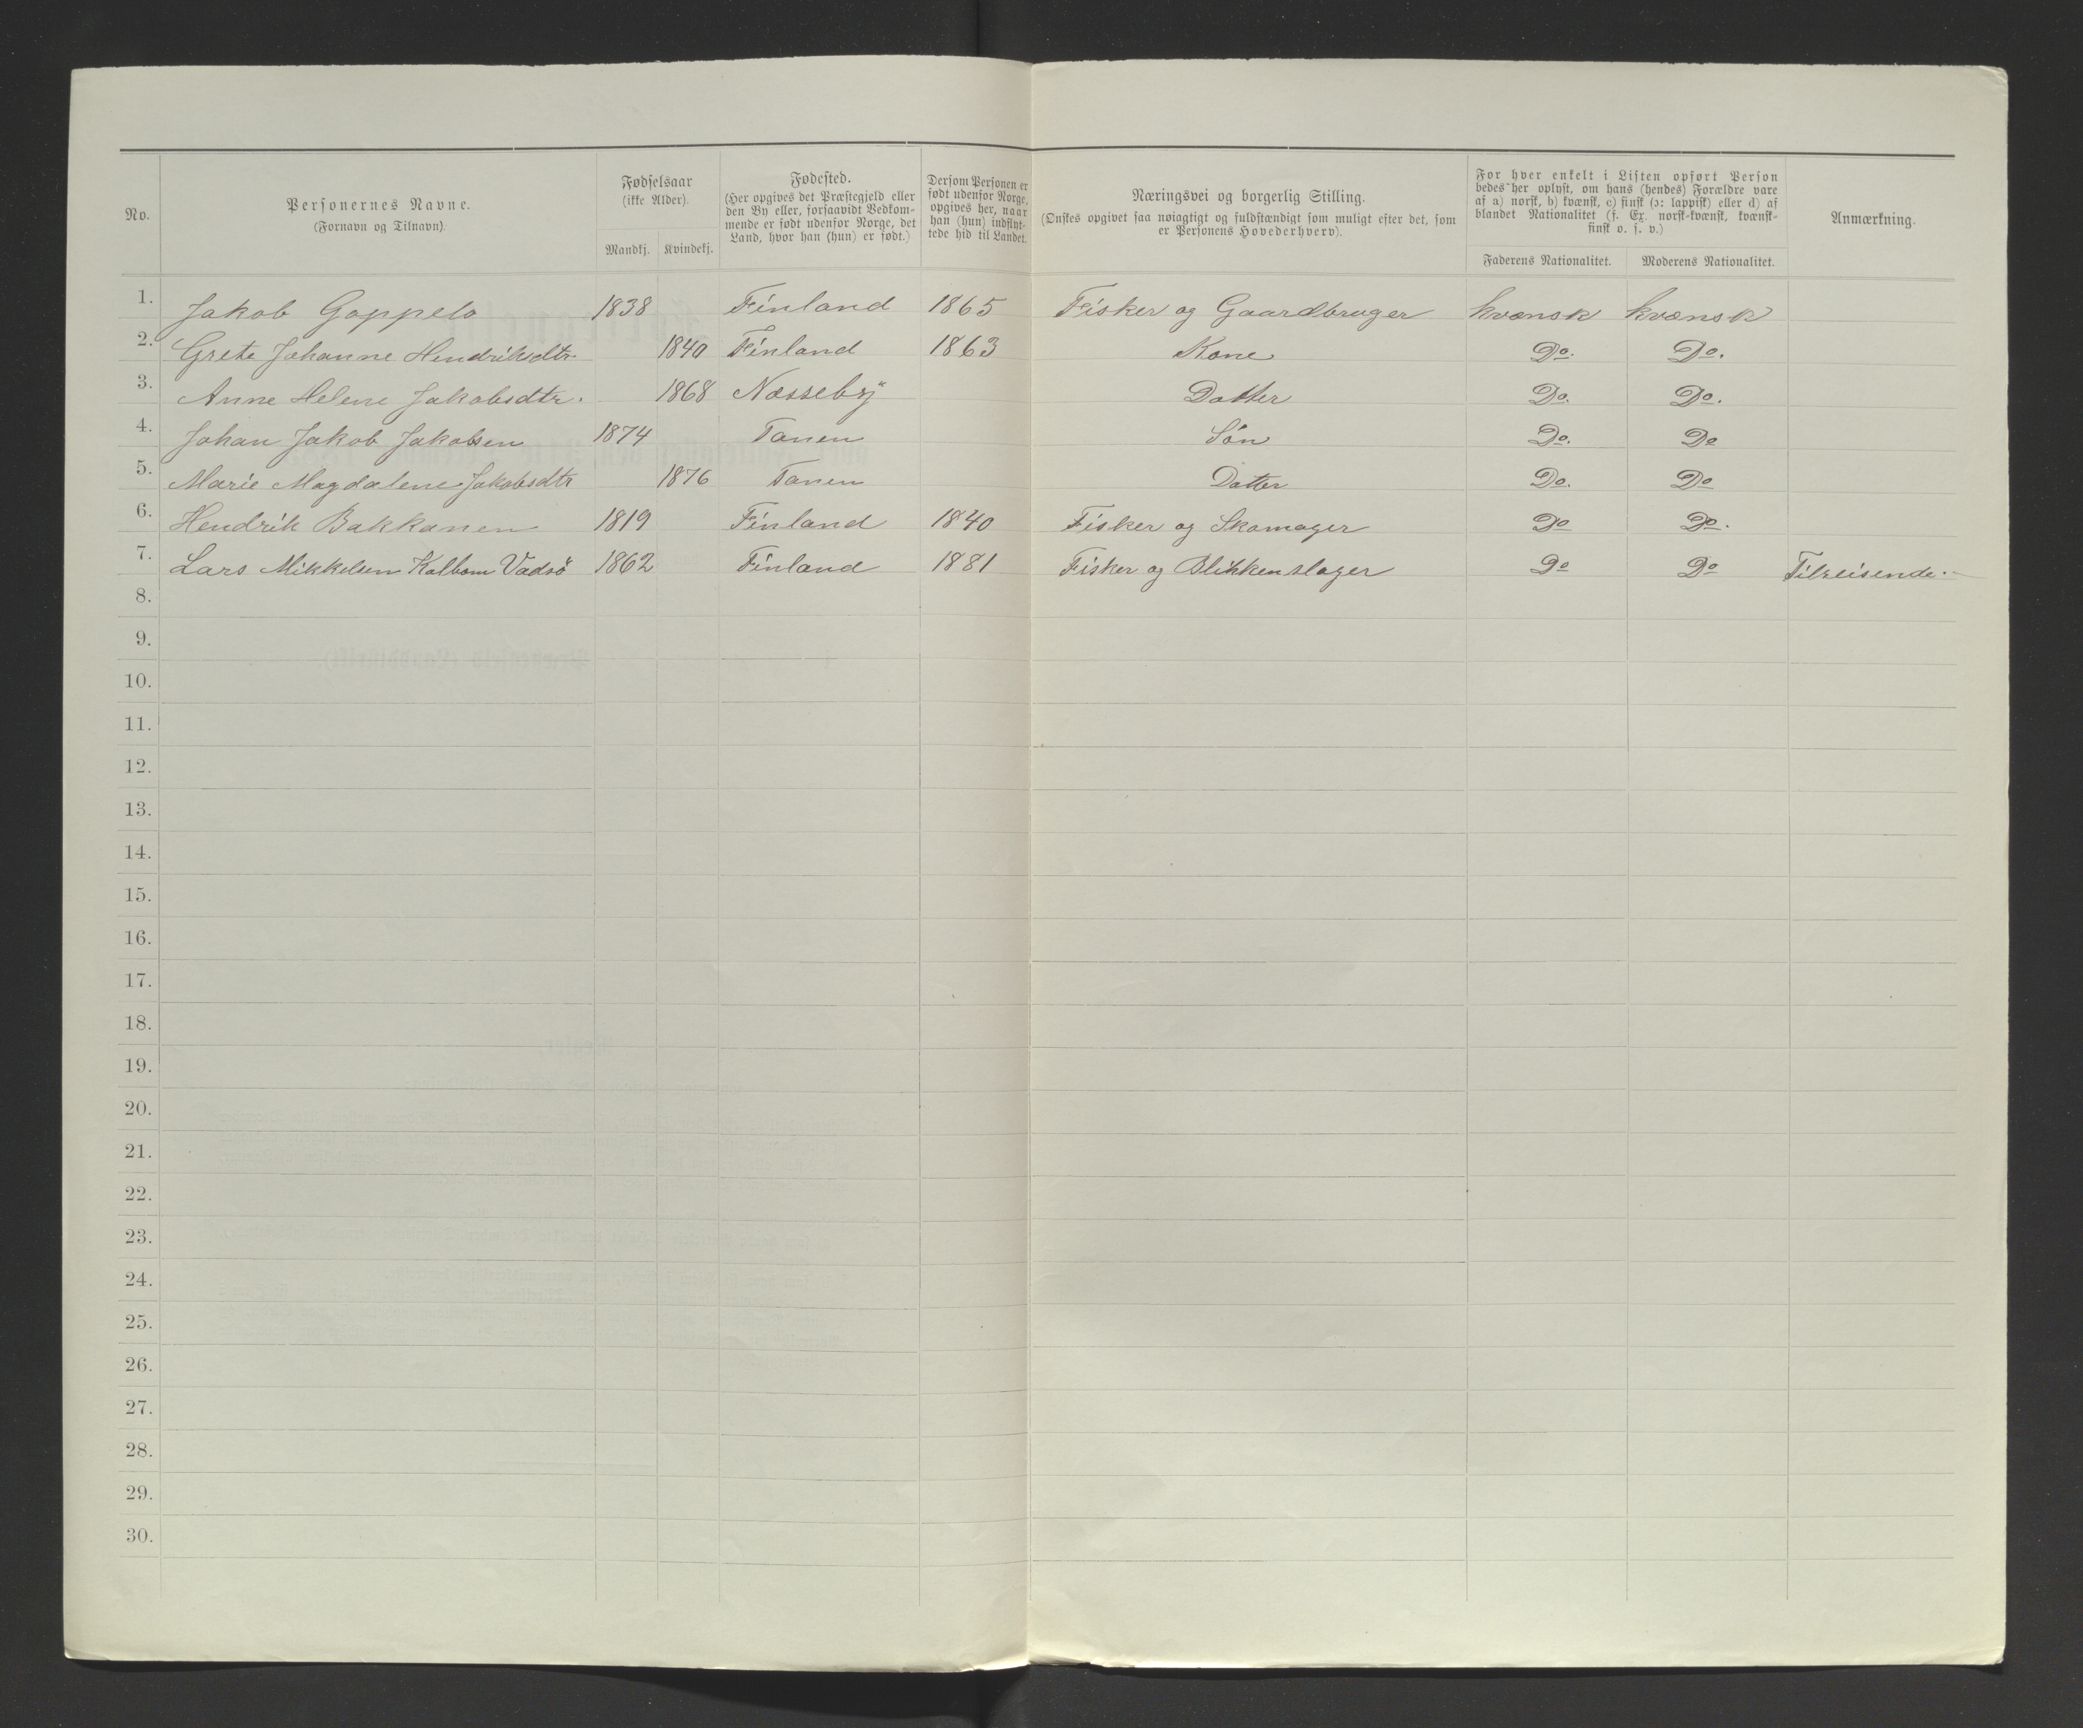 No.
Personernes Navne.
(Fornavn og Tilnavn).
Fødselsaar
(ikke Alder).
Mandkj. Kvindekj.
Fødested.
(Her opgives det Præstegjeld eller
den By eller, forsaavidt Vedkom-
mende er født udenfor Norge, det
Land, hvor han (hun) er født.)
Dersom Personen er
født udenfor Norge,
opgives her, naar
han (hun) indflyt-
tede hid til Landet.
Næringsvei og borgerlig Stilling.
(Ønskes opgivet saa nøiagtigt og fuldstændigt som muligt efter det, som
er Personens Hovederhverv).
For hver enkelt i Listen opført Person
bedes her oplyst, om hans (hendes) Forældre vare
af a) norsk, b) kvænsk, c) finsk (ɔ: lappisk) eller d) af
blandet Nationalitet (f. Ex. norsk-kvænsk, kvænsk-
finsk o. s. v.)
Faderens Nationalitet. Moderens Nationalitet.
Anmærkning.
1. Jakob Goppelo 1838 Finland 1865 Fisker og Gaardbruger kvænsk kvænsk
2. Grete Johanne Hendriksdtr. 1840 Finland 1863 Kone Do. Do.
3. Anne Helene Jakobsdtr. 1868 Næsseby Datter Do. Do.
4. Johan Jakob Jakobsen 1874 Tanen Søn Do. Do
5. Marie Magdalene Jakobsdtr 1876 Tanen Datter Do. Do
6. Hendrik Bakkanen 1819 Finland 1840 Fisker og Skomager Do Do.
7. Lars Mikkelsen Kolbom Vadsö 1862 Finland 1881 Fisker og Blikkenslager Do Do Tilreisende.
8.
9.
10.
11.
12.
13.
14.
15.
16.
17.
18.
19.
20.
21.
22.
23.
24.
25.
26.
27.
28.
29.
30.